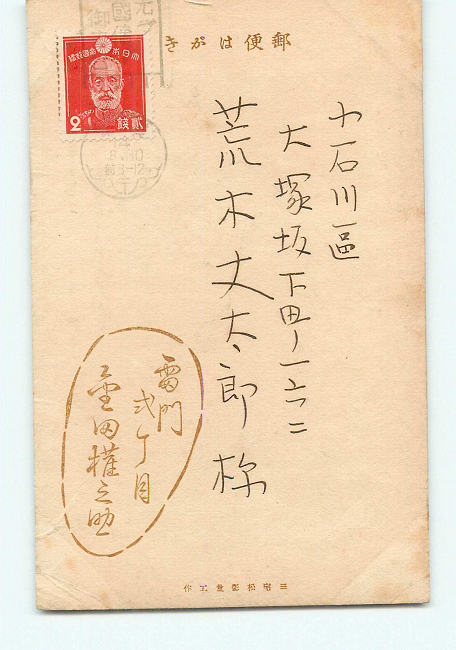 郵便はがき
大日本帝國郵便
2 銭 貳
小石川區
大塚坂下町一六二
荒木丈太郎 様
雷門
弐丁目
金田權之助
三宅松影堂工作